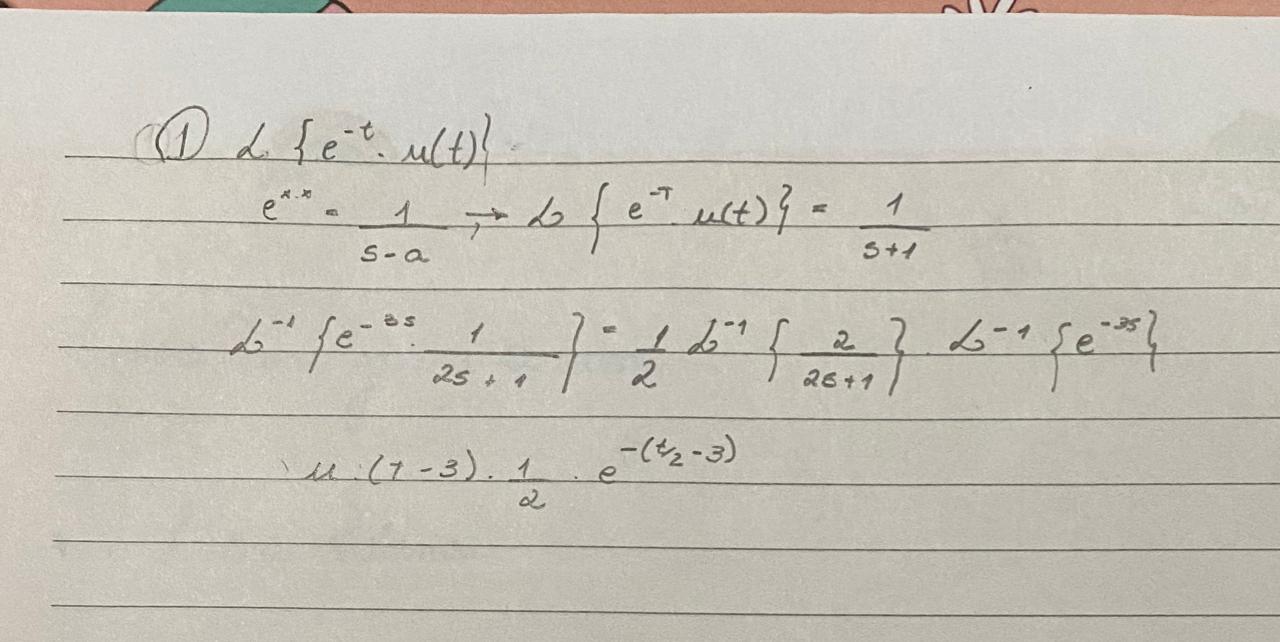 ① ℒ {e^-t · u(t)}
e^x·x = 1/(s-a) → ℒ {e^-T u(t)} = 1/(s+1)
ℒ^-1 {e^-3s · 1/(2s+1)} = 1/2 ℒ^-1 {2/(2s+1)} · ℒ^-1 {e^-3s}
u·(t-3) · 1/2 · e^-(t/2-3)